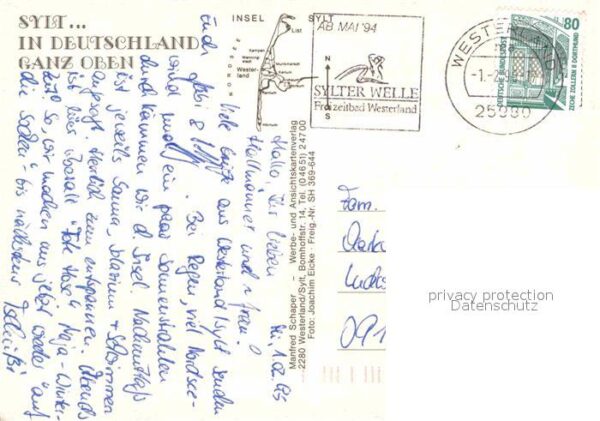 SYLT...
IN DEUTSCHLAND
GANZ OBEN
INSEL SYLT
List
Wester-
land
AB MAI '94
N
S
SYLTER WELLE
Freizeitbad Westerland
WESTERLAND
25980
80
DEUTSCHE BUNDESPOST
ZECHE ZOLLERN II DORTMUND
Manfred Schaper - Werbe- und Ansichtskartenverlag
2280 Westerland/Sylt, Bomhoffstr. 14, Tel. (0 46 51) 2 47 00
Foto: Joachim Eicke - Freig.-Nr. SH 369-644
Di 1.2.95
Hallo, Ihr lieben
Hallmänner und -frau
viele Grüße aus Westerland/Sylt senden
Euch
Bei Regen, viel Nordsee-
wind und ein paar Sonnenstrahlen
durchkämmen wir d. Insel. Nachmittags
ist jeweils Sauna, Solarium + Schwimmen
angesagt. Herrlich zum entspannen. Abends
ist hier überall "Tote Hose". Naja - Winter-
zeit. So, wir machen uns jetzt wieder "auf
die Socken" - bis nächstens Tschüß!
Fam.
091
privacy protection
Datenschutz